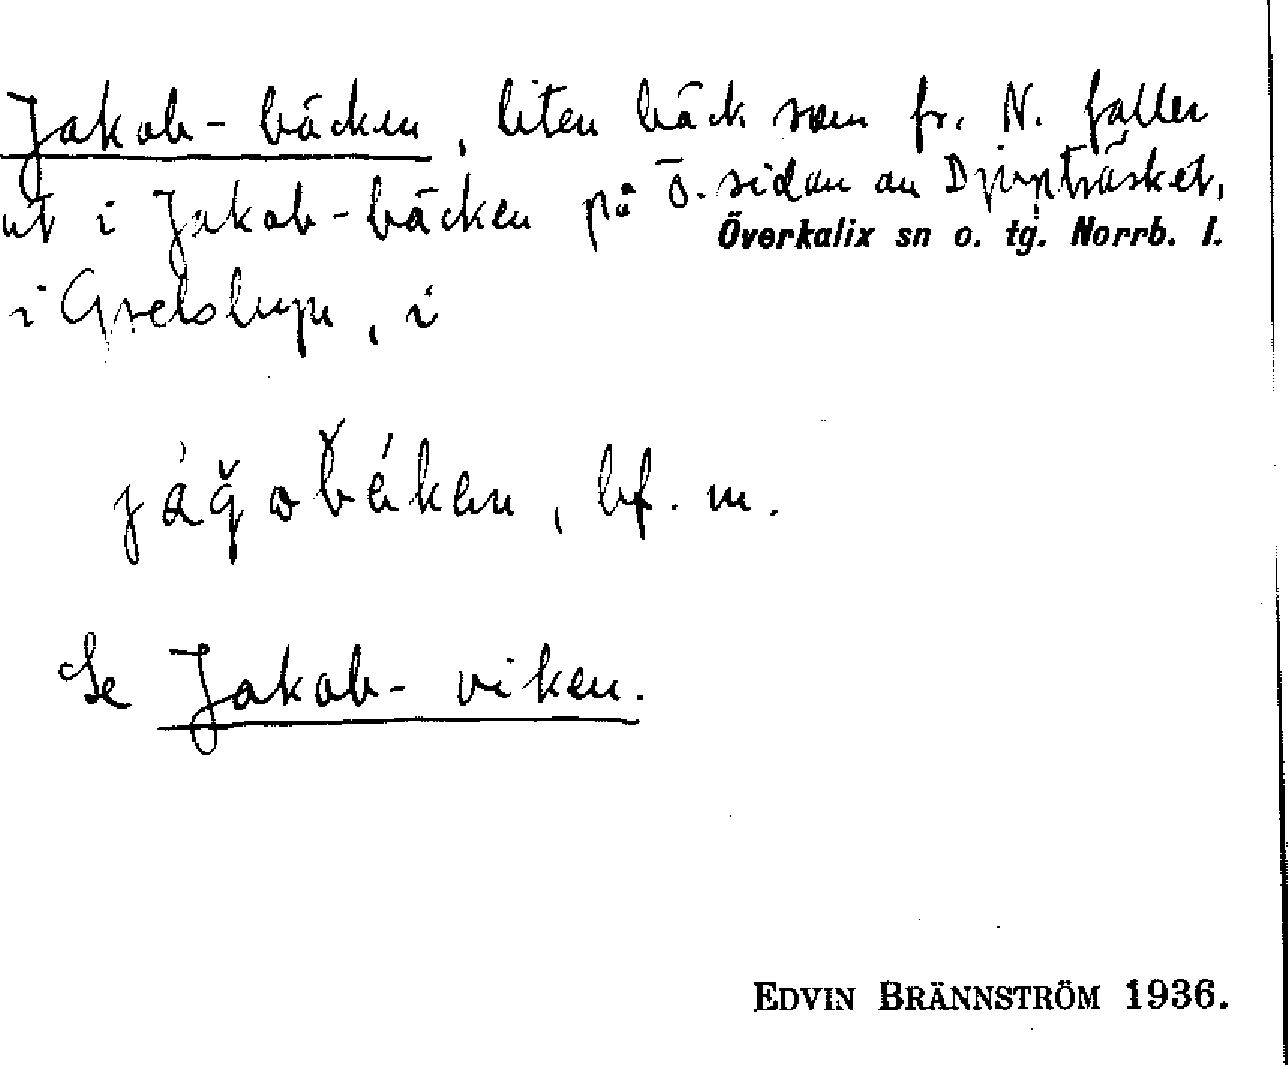 Jakob-bäcken, liten bäck som fr. N. faller
ut i Jakob-bäcken på ö. sidan av Djupträsket,
Överkalix sn o. tg. Norrb. l.
i Grelsbyn, i
bf. m.
Se Jakob-viken.
EDVIN BRÄNNSTRÖM 1936.